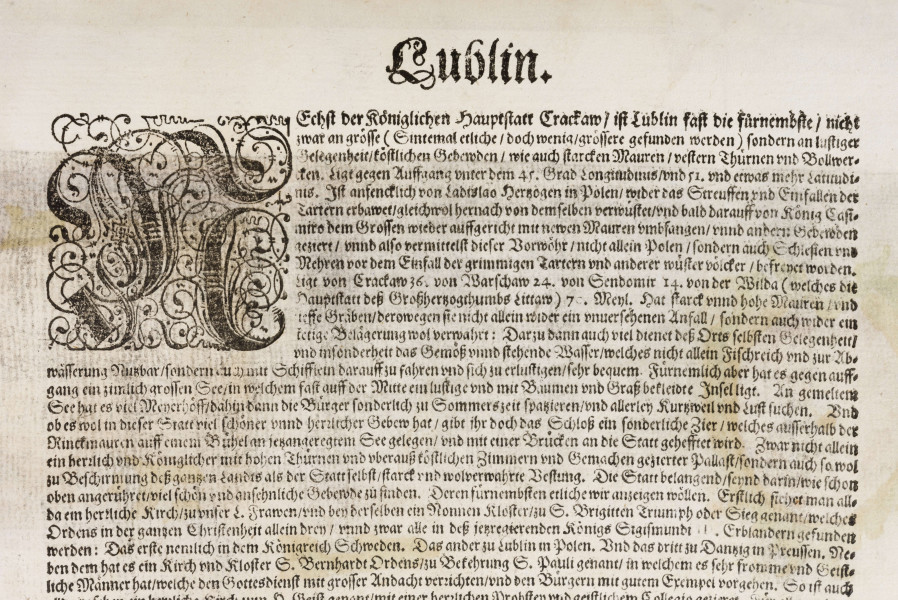 Lublin.
NEchst der Königlichen Hauptstatt Crackaw / ist Lublin fast die fürnembste / nicht
zwar an grösse ( Sintemal etliche / doch wenig / grössere gefunden werden ) sondern an lustiger
Gelegenheit / köstlichen Gebewden / wie auch starcken Mauren / vestern Thürnen vnd Bollwer-
cken. Ligt gegen Auffgang vnter dem 45. Grad Longitudinis / vnd 51. vnd etwas mehr Latitudi-
nis. Ist anfencklich von Ladislao Hertzogen in Polen / wider das Streuffen vnd Einfallen der
Tartern erbawet / gleichwol hernach von demselben verwüstet / vnd bald darauff von König Casi-
miro dem Grossen wieder auffgericht mit newen Mauren vmbfangen / vnnd andern Gebewden
geziert / vnnd also vermittelst dieser Vorwöhr / nicht allein Polen / sondern auch Schlesien vnd
Mehren vor dem Einfall der grimmigen Tartern vnd anderer wüster völcker / befreyet worden.
Ligt von Crackaw 36. von Warschaw 24. von Sendomir 14. von der Wilda ( welches die
Hauptstatt deß Großhertzogthumbs Littaw ) 70. Meyl. Hat starck vnnd hohe Mauren / vnd
tieffe Gräben / derowegen sie nicht allein wider ein vnuersehenen Anfall / sondern auch wider ein
stetige Belägerung wol verwahrt : Darzu dann auch viel dienet deß Orts selbsten Gelegenheit /
vnd insonderheit das Gemöß vnnd stehende Wasser / welches nicht allein Fischreich vnd zur Ab-
wässerung Nutzbar / sondern auch mit Schifflein darauff zu fahren vnd sich zu erlustigen / sehr bequem. Fürnemlich aber hat es gegen auff-
gang ein zimlich grossen See / in welchem fast auff der Mitte ein lustige vnd mit Bäumen vnd Graß bekleidte Insel ligt. An gemeltem
See hat es viel Meyerhöff / dahin dann die Bürger sonderlich zu Sommerszeit spatzieren / vnd allerley Kurtzweil vnd Lust suchen. Vnd
ob es wol in dieser Statt viel schöner vnnd herrlicher Gebew hat / gibt ihr doch das Schloß ein sonderliche Zier / welches ausserhalb der
Rinckmauren auff einem Bühel an jetzangeregtem See gelegen / vnd mit einer Brücken an die Statt gehefftet wird. Zwar nicht allein
ein herrlich vnd Königlicher mit hohen Thürnen vnd vberauß köstlichen Zimmern vnd Gemachen gezierter Pallast / sondern auch so wol
zu Beschirmung deß gantzen Landts als der Statt selbst / starck vnd wolverwahrte Vestung. Die Statt belangend / seynd darin / wie schon
oben angerühret / viel schön vnd ansehnliche Gebewde zu finden. Deren fürnembsten etliche wir anzeigen wöllen. Erstlich siehet man all-
da ein herrliche Kirch / zu vnser L. Frawen / vnd bey derselben ein Nonnen Kloster / zu S. Brigitten Triumph oder Sieg genant / welches
Ordens in der gantzen Christenheit allein drey / vnnd zwar alle in deß jetzregierenden Königs Sigismundi Erblandern gefunden
werden : Das erste nemlich in dem Königreich Schweden. Das ander zu Lublin in Polen. Vnd das dritt zu Dantzig in Preussen. Ne-
ben dem hat es ein Kirch vnd Kloster S. Bernhardt Ordens / zu Bekehrung S. Pauli genant / in welchem es sehr fromme vnd Geist-
liche Männer hat / welche den Gottesdienst mit grosser Andacht verrichten / vnd den Bürgern mit gutem Exempel vorgehen. So ist auch